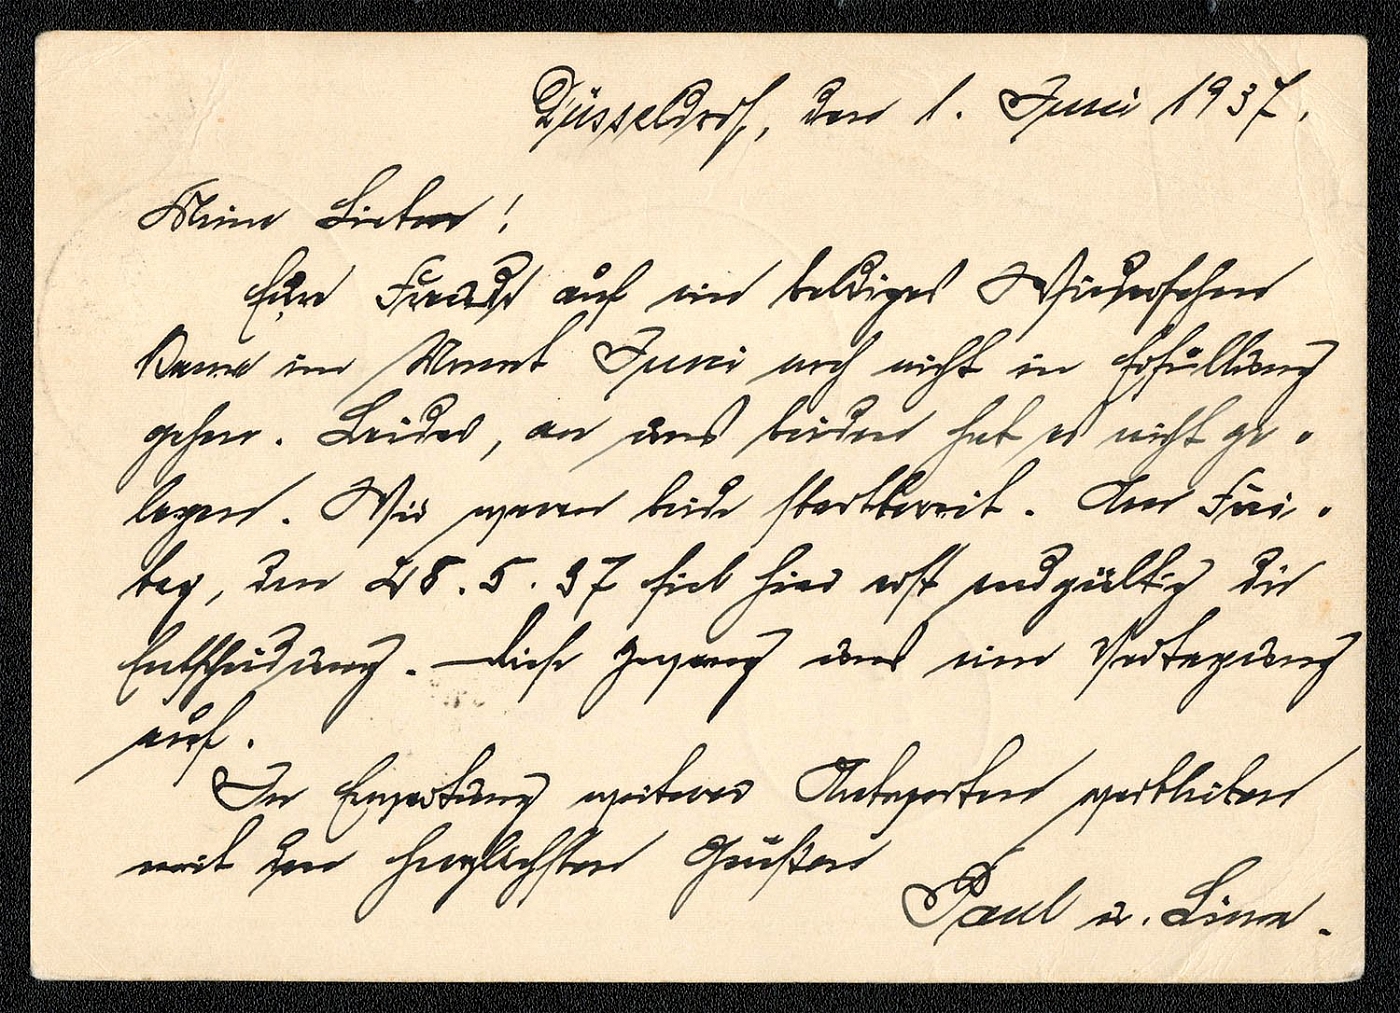 Düsseldorf, den 1. Juni 1937.
Meine Lieben!
Eure Freude auf ein baldiges Wiedersehen
kann im Monat Juni noch nicht in Erfüllung
gehen. Leider, an uns beiden hat es nicht ge-
legen. Wir waren beide startbereit. Am Frei-
tag, den 28.5.37 fiel hier erst endgültig die
Entscheidung. — Diese zwang uns eine Vertagung
auf.
In Erwartung weiterer Antworten verbleiben
mit den herzlichsten Grüßen
Paul u. Lina.